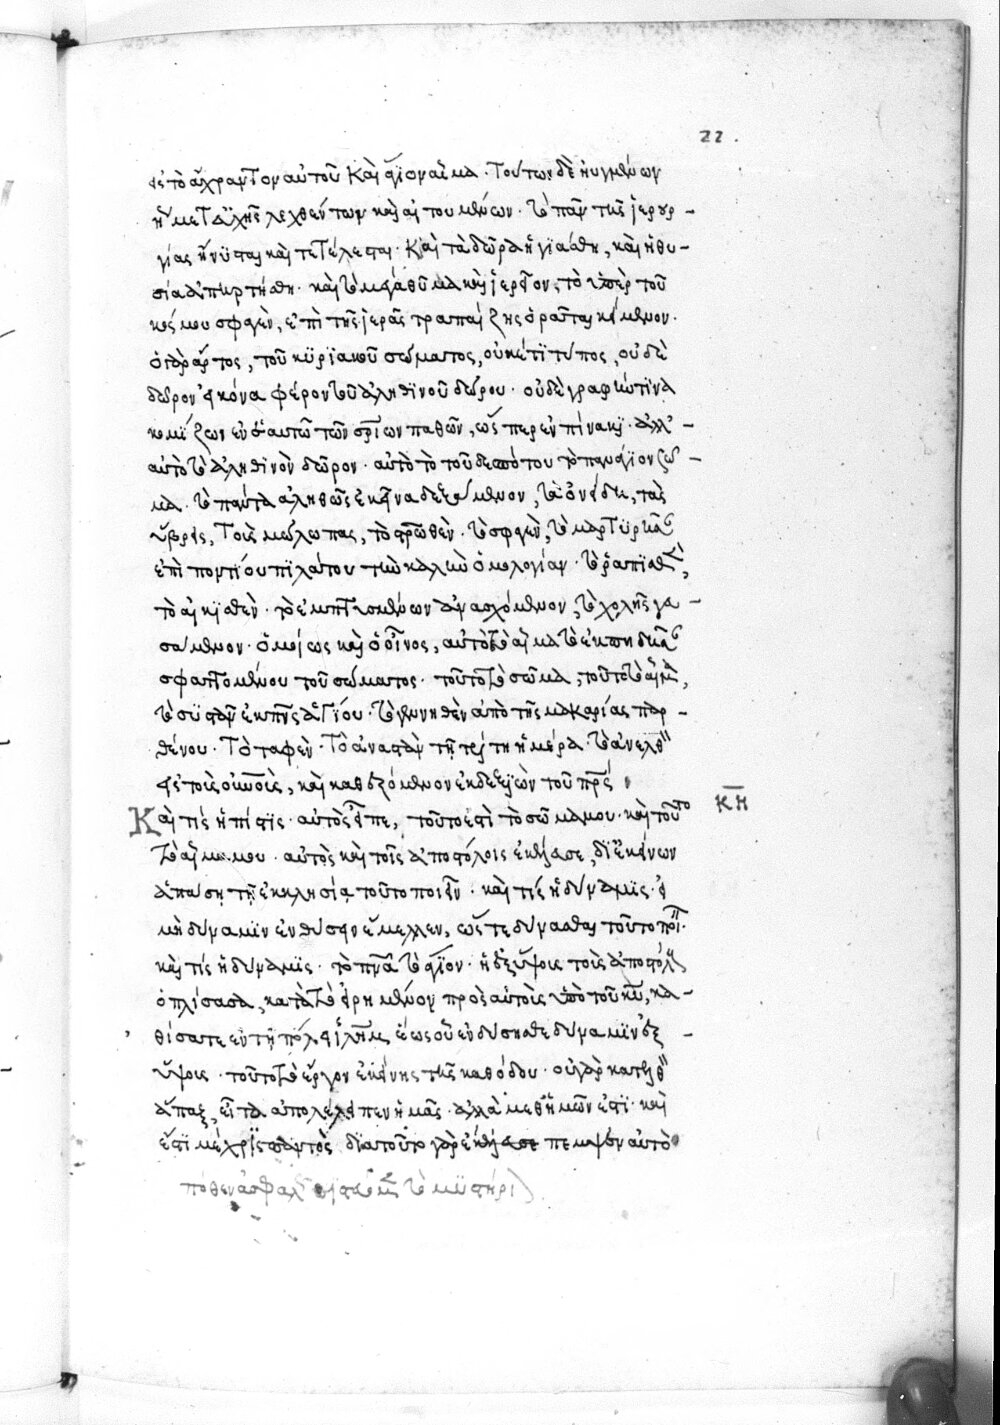 22.
εἰς τὸ ἄχραντον αὐτοῦ καὶ ἅγιον αἷμα· τούτων δὲ ηὐγμένων
ἢ μετ' εὐχῆς λεχθέντων καὶ αἰτουμένων· τὸ πᾶν τῆς ἱερουρ-
γίας ἤνυσται καὶ τετέλεσται· καὶ τὰ δῶρα ἡγιάσθη, καὶ ἡ θυ-
σία ἀπηρτήσθη· καὶ τὸ μέγα θῦμα καὶ ἱερεῖον, τὸ ὑπὲρ τοῦ
κόσμου σφαγέν, ἐπὶ τῆς ἱερᾶς τραπέζης ὁρᾶται κείμενον·
ὁ γὰρ ἄρτος, τοῦ κυριακοῦ σώματος, οὐκέτι τύπος, οὐδὲ
δῶρον εἰκόνα φέρον τοῦ ἀληθινοῦ δώρου· οὐδὲ γραφήν τινα
κομίζων ἐν ἑαυτῷ τῶν σωτηρίων παθῶν, ὥσπερ ἐν πίνακι· ἀλλ' -
αὐτὸ τὸ ἀληθινὸν δῶρον· αὐτὸ τὸ τοῦ δεσπότου τὸ πανάγιον σῶ -
μα· τὸ πάντα ἀληθῶς ἐκεῖνα δεξάμενον, τὰ ὀνείδη, τὰς
ὕβρεις, τοὺς μώλωπας, τὸ σταυρωθὲν· τὸ σφαγὲν, τὸ μαρτυρῆσαν
ἐπὶ ποντίου πιλάτου τὴν καλὴν ὁμολογίαν· τὸ ῥαπισθὲν,
τὸ αἰκισθὲν· τὸ ἐμπτυσμάτων ἀνασχόμενον, τὸ χολῆς γευ -
σάμενον· ὁμοίως καὶ ὁ οἶνος, αὐτὸ τὸ αἷμα τὸ ἐκπηδῆσαν
σφαττομένου τοῦ σώματος· τοῦτο τὸ σῶμα, τοῦτο τὸ αἷμα,
τὸ συστὰν ἐκ πνς ἁγίου· τὸ γεννηθὲν ἀπὸ τῆς μακαρίας παρ -
θένου· τὸ ταφὲν· τὸ ἀναστὰν τῇ τρίτῃ ἡμέρᾳ· τὸ ἀνελθὸν
εἰς τοὺς οὐνοὺς, καὶ καθεζόμενον ἐκ δεξιῶν τοῦ πρς·
Καὶ τίς ἡ πίστις· αὐτὸς εἶπε, τοῦτό ἐστι τὸ σῶμά μου· καὶ τοῦτο κη
τὸ αἷμά μου· αὐτὸς καὶ τοῖς ἀποστόλοις ἐκέλευσε, δι' ἐκείνων
ἁπάσῃ τῇ ἐκκλησίᾳ τοῦτο ποιεῖν· καὶ τίς ἡ δύναμις· εἰ
μὴ δύναμιν ἐνθήσειν ἔμελλεν, ὥστε δύνασθαι τοῦτο ποιεῖν·
καὶ τίς ἡ δύναμις· τὸ πνα τὸ ἅγιον· ἡ ἐξ ὕψους τοὺς ἀποστόλους
ὁπλίσασα, κατὰ τὸ εἰρημένον πρὸς αὐτοὺς ὑπὸ τοῦ κυ, κα -
θίσατε ἐν τῇ πόλει ἱλημ, ἕως οὗ ἐνδύσησθε δύναμιν ἐξ -
ὕψους· τοῦτο τὸ ἔργον ἐκείνης τῆς καθόδου· οὐ γὰρ κατελθὸν
ἅπαξ, εἶτα ἀπολέλοιπεν ἡμᾶς· ἀλλὰ μεθ' ἡμῶν ἐστι· καὶ
ἔσται μέχρι παντὸς· διὰ τοῦτο γὰρ ἐκέλευσε πέμψειν αὐτὸ
πόθεν ἀσφαλ τὸ μυστήρι